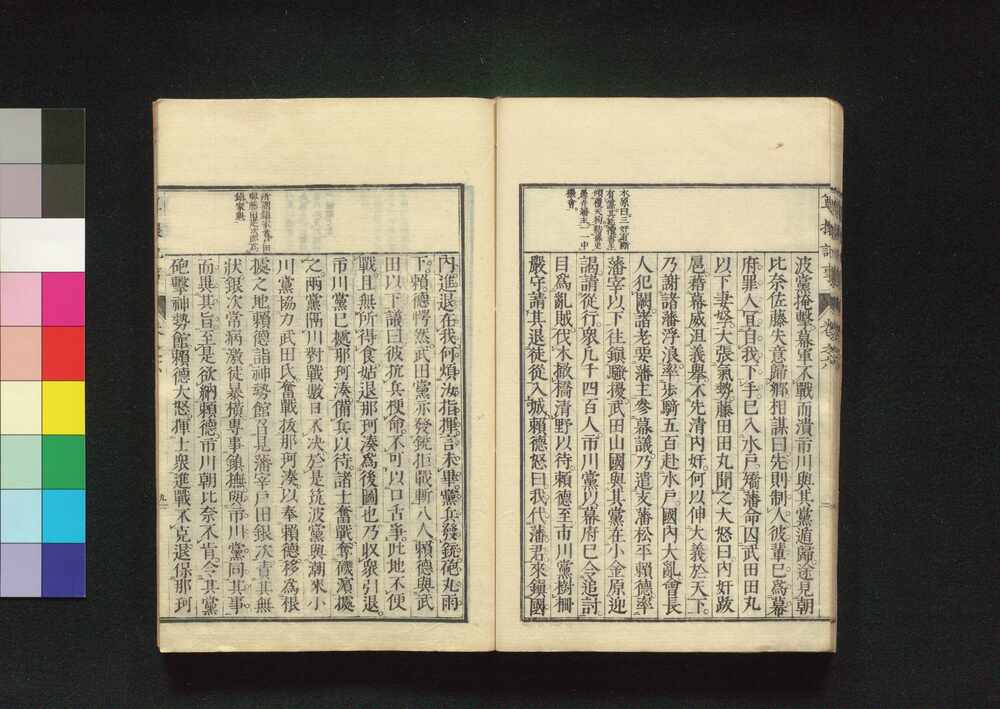 波黨掩擊幕軍不戰而潰市川與其黨遁歸途見朝
比奈佐藤失意歸鄉相謀曰先則制人彼輩已爲幕
府罪人宜自我下手已入水戶矯藩命囚武田田丸
以下妻孥大張氣勢藤田田丸聞之大怒曰內奸跋
扈藉幕威沮義擧不先清內奸何以伸大義於天下
乃謝諸藩浮浪率步騎五百赴水戶國內大亂會長
人犯闕諸老要藩主參幕議乃遣支藩松平賴德率
藩宰以下往鎭騷擾武田山國與其黨在小金原迎
謁請從行衆凡千四百人市川黨以幕府已令追討
目爲亂賊伐木撤橋清野以待賴德至市川黨樹柵
嚴守請其退徒從入城賴德怒曰我代藩君來鎭國
內進退在我何煩汝指揮言未畢黨兵發銃砲丸雨
下賴德愕然武田黨亦發銃拒戰斬八人賴德與武
田以下議曰彼抗兵梗命不可以口舌爭此地不便
戰且無所得食姑退那珂湊爲後圖也乃收衆引退
市川黨已據那珂湊備兵以待諸士奮戰奪磯濱據
之兩黨隔川對戰數日不決於是筑波黨與潮來小
川黨協力武田氏奮戰拔那珂湊以奉賴德移爲根
據之地賴德詣神勢館召見藩宰戶田銀次責其無
狀銀次常病激徒暴橫專事鎭撫與市川黨同其事
而異其旨至是欲納賴德市川朝比奈不肯令其黨
砲擊神勢館賴德大怒揮士衆進戰不克退保那珂